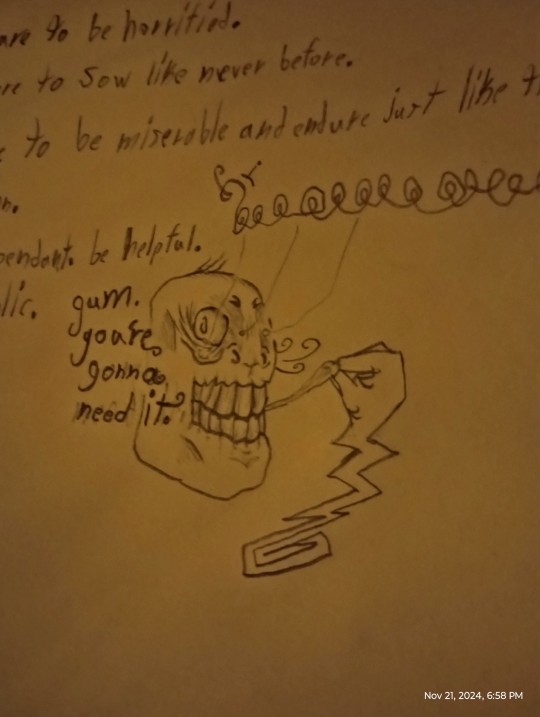 are to be horrified.
to sow like never before.
to be miserable and endure just like
be helpful.
gum.
you're
gonna
need it.
Nov 21, 2024, 6:58 PM